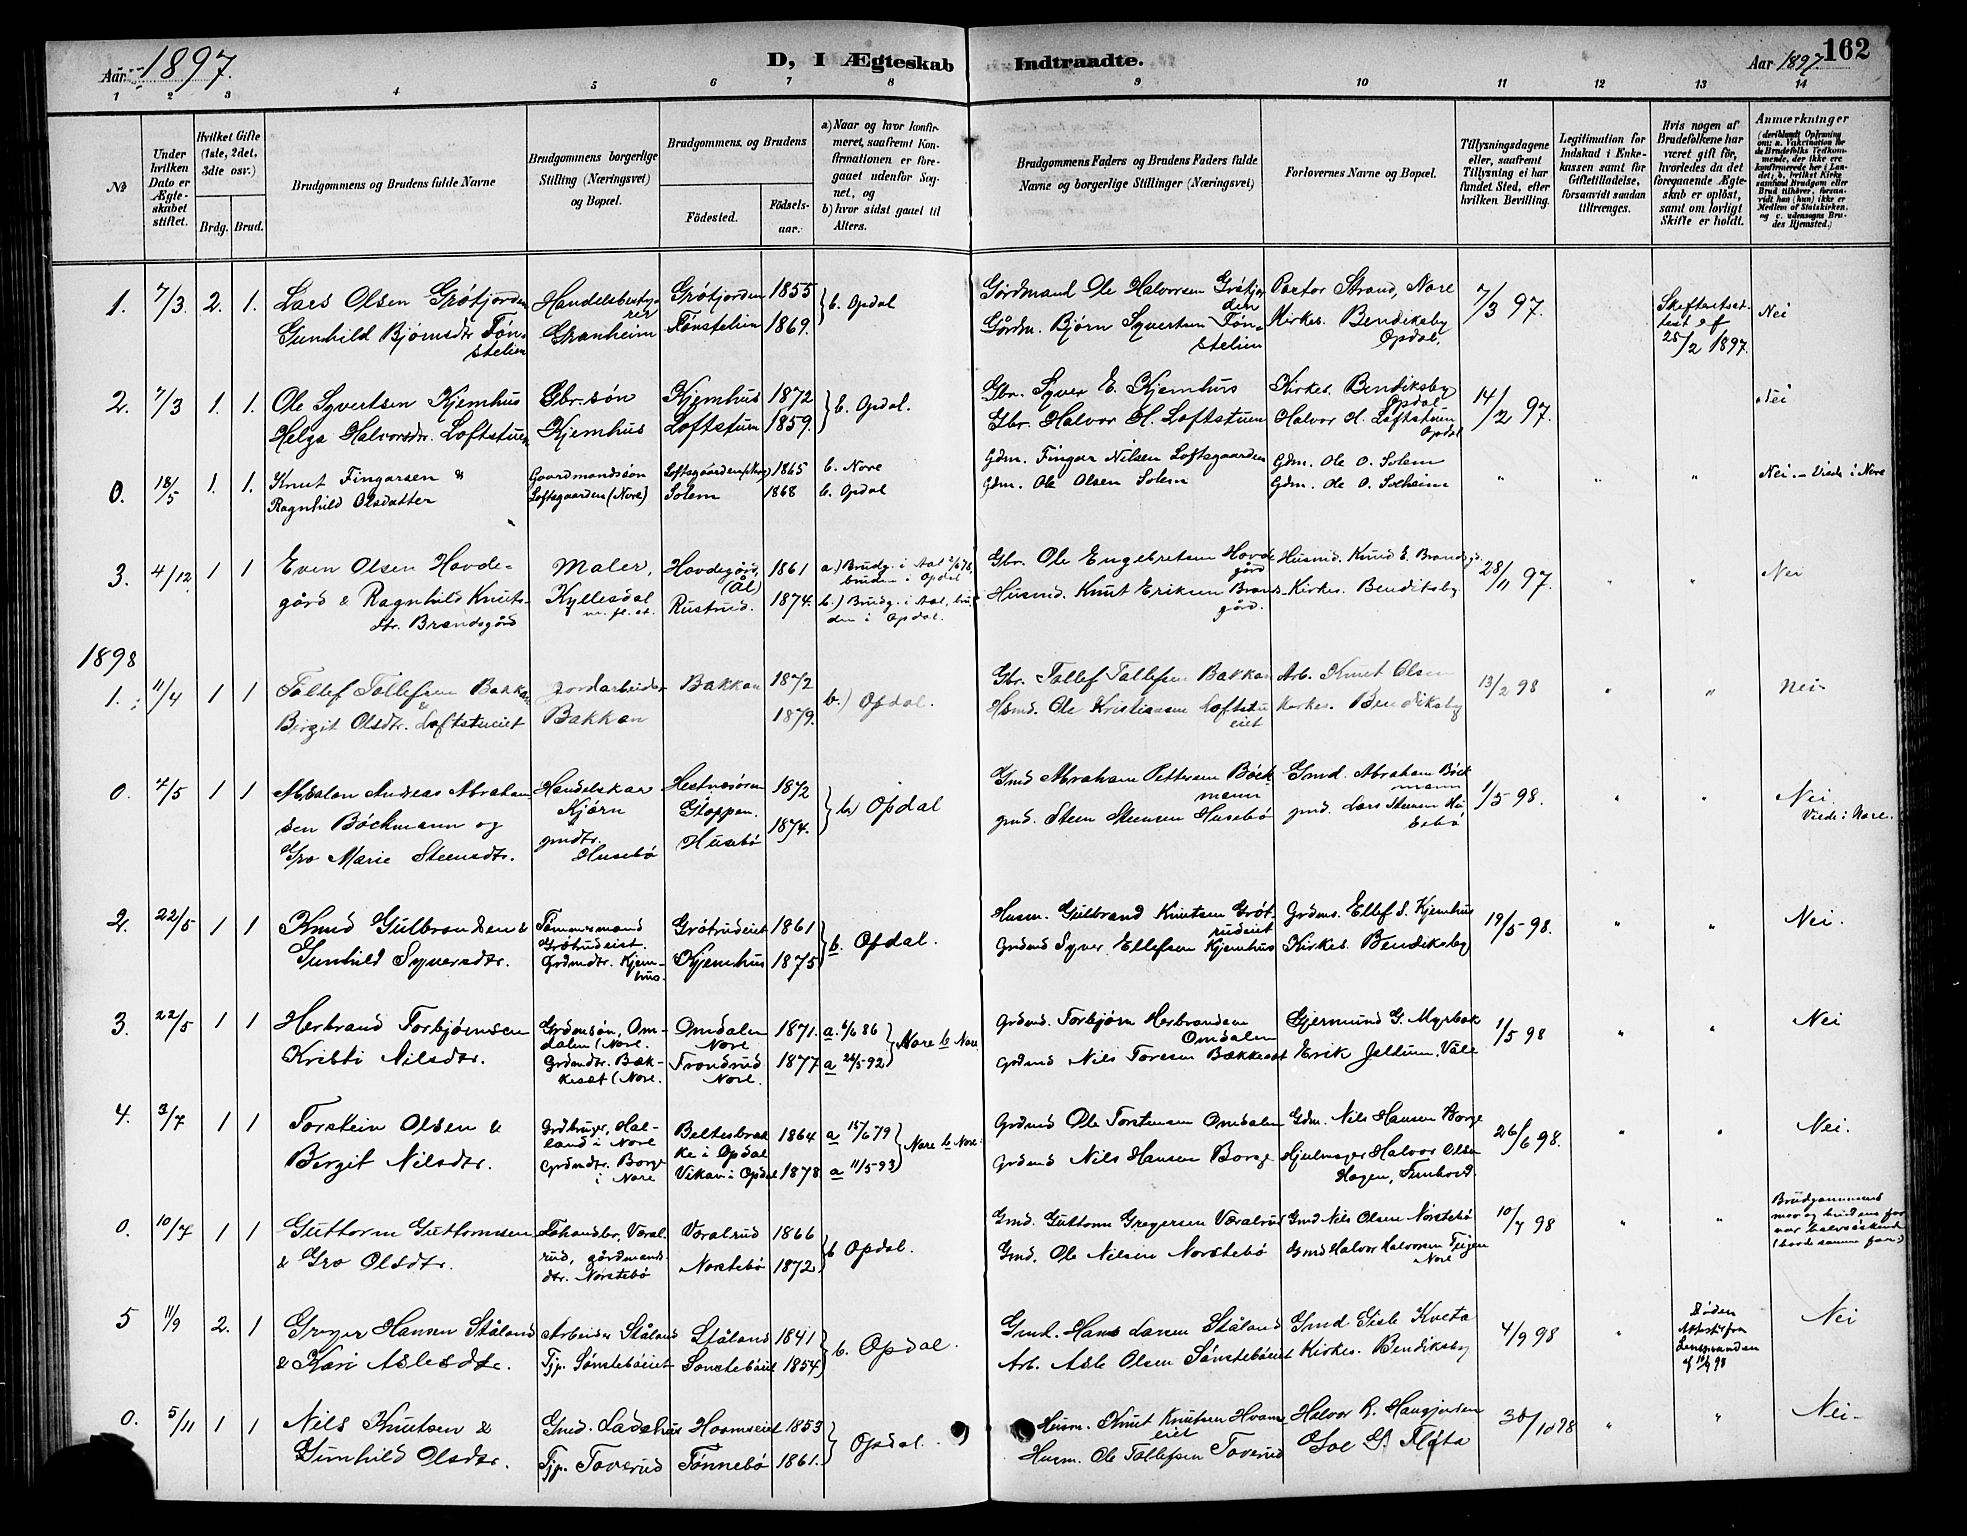 Aar 1897.
D, I Ægteskab Indtraadte.
Aar 1897. 162
1 2 3 4 5 6 7 8 9 10 11 12 13 14
No
Under hvilken Dato er Ægteskabet stiftet.
Hvilket Gifte (1ste, 2det, 3die osv.)
Brdg. Brud.
Brudgommens og Brudens fulde Navne
Brudgommens borgerlige Stilling (Næringsvei) og Bopæl.
Brudgommens og Brudens
Fødested. Fødselsaar.
a) Naar og hvor konfirmeret, saafremt Konfirmationen er foregaaet udenfor Sognet, og
b) hvor sidst gaaet til Alters.
Brudgommens Faders og Brudens Faders fulde Navne og borgerlige Stillinger (Næringsvei)
Forlovernes Navne og Bopæl.
Tillysningsdagene eller, saafremt Tillysning ei har fundet Sted, efter hvilken Bevilling.
Legitimation for Indskud i Enkekassen samt for Giftetilladelse, forsaavidt saadan tiltrænges.
Hvis nogen af Brudefolkene har været gift før, hvorledes da det foregaaende Ægteskab er opløst, samt om lovligt Skifte er holdt.
Anmærkninger
1. 7/3. 2. 1. Lars Olsen Grötjorden Handelsbestyrer Grötjorden 1855 b. Opdal Gårdmand Ole Halvorsen Grötjorden Pastor Strand, Nore 7/3 97. Nei
Gunhild Bjørnsdtr Tønstelien Granheim Tønstelien 1869. Gårdm. Bjørn Syvertsen Tønstelien Kirkes. Bendiksby Opdal. 25/2 1897.
2. 7/3 1. 1. Ole Syvertsen Kjemhus Gbr.-søn Kjemhus 1872 b. Opdal. Gbr. Syver E. Kjemhus Kirkes. Bendiksby Opdal 14/2 97. Nei
Helga Halvorsdtr. Loftstuen Kjemhus Loftstuen 1859. Gbr. Halvor H. Loftstuen Halvor H. Loftstuen Opdal
0. 18/5 1. 1. Knut Fingarsen & Gaardmandssøn Loftsgaarden (Nore) 1865 b. Nore Gdm. Fingar Nilsen Loftsgaarden Gdm. Ole O. Solem " " " Nei. – Viede i Nore
Ragnhild Olsdatter Loftsgaarden (Nore) Solem 1868 b. Opdal Gdm. Ole Olsen Solem Gdm. Ole O. Solheim
3. 4/12 1 1 Even Olsen Hovde- Maler, Hovdegård, (Ål) 1861 a.) Brudg. i Aal bruden i Opdal Gbr. Ole Engebretsen Hovdegård Husmd. Knud E. Brandsgd. 28/11 97. " " Nei
gård & Ragnhild Knuts- Kyllesdal Rustrud. 1874. b.) Brudg. i Aal, bruden i Opdal. Husmd. Knut Eriksen Brandsgård. Kirkes. Bendiksby
dtr. Brandsgård
1898
1. 11/4 1 1 Tollef Tollefsen Bakkan & Jordarbeider Bakkan 1872 b.) Opdal. Gbr. Tollef Tollefsen Bakkan Arb. Knut Olsen 13/2 98 " " Nei
Birgit Olsdtr. Loftstueiet Bakkan 1879. Hsmd. Ole Kristiansen Loftstueiet Kirkes. Bendiksby
0. 7/5 1 1 Absalon Andreas Abraham- Handelskar 1872 b.) Opdal Gmd Abraham Pettersen Böckmann Gmd. Abraham Böckmann 1/5 98. " " Nei.
sen Böckmann og Kjörn 1874. gmd. Steen Steensen Husebö gmd. Lars Steensen Husebö Viede i Nore.
Gro Marie Steensdtr. gmdtr. Husebö Husebö
2. 22/5 1 1 Knud Gulbrandsen & Tømmermand Grötrudeiet. Grötrudeiet 1861 b. Opdal. Husm. Gulbrand Knutsen Grötrudeiet Grdms. Ellef S. Kjemhus 19/5-98. " " Nei.
Gunhild Syversdtr. Grdmdtr. Kjemhus. Kjemhus 1875 Grdmd Syver Ellefsen Kjemhus Kirkes. Bendiksby
3. 22/5 1 1 Herbrand Torbjörnsen Grdmssøn, Omdalen (Nore. Omdalen Nore 1871. a. 6/6 86 Nore b Nore Grdmd. Torbjörn Herbrandsen Omdalen Gjermund G. Myrbak 1/5 98 " " Nei
Kristi Nilsdtr. Grdmdtr. Bækkeset (Nore. Trondrud Nore. 1877 a 26/5-92 Grdmd Nils Toresen Bækkeset Erik
4. 3/7 1 1 Torstein Olsen & Grdbruger, Halland i Nore Beltesbrække i Opdal 1864 a 15/6 79 Nore b Nore. Grdmd Ole Torstensen Omdalen Gdm. Nils Hansen Borge 26/6 98. " " Nei.
Birgit Nilsdtr. Grdmdtr. Borge i Nore Vikan i Opdal 1878. a 11/5-93 Grdmd Nils Hansen Borge Hjulmager Halvor Olsen Hagen,
0. 10/7 1 1 Guttorm Guttormsen Væralrud, gårdmandsdtr. Norstebö Væralrud 1866 b Opdal. Gmd. Guttorm Gregersen Væralrud Gmd Nils Olsen Norstebö 10/7 98 " " Brudgommens mor og brudens far var halvsöskende (havde samme far.)
& Gro Olsdtr. Norstebö 1872. Gmd. Ole Nilsen Norstebö Gmd Halvor Halvorsen Teigen Nore
5 11/9 2. 1 Greger Hansen Ståland Arbeider Ståland Ståland 1841 b. Opdal. Gmd. Hans Larsen Ståland Gmd Gisle Kveta 4/9 98 " Døden Attest fra Lensmanden Nei
& Kari Aslesdtr. Tjp. Sønstebøeiet Sønstebøeiet 1854 Arb. Asle Olsen Sønstebøeiet Kirkes. Bendiksby
0. 5/11 1 1 Nils Knutsen & Gmd. Ladshus 1853 Opdal. Husm. Knut Knutsen Halvor R. Haugjorden 30/10 98 " " Nei.
Gunhild Olsdtr. Tjp. Toverud Tønnebö 1861. Husm. Ole Tollefsen Toverud Ole G. Fløta